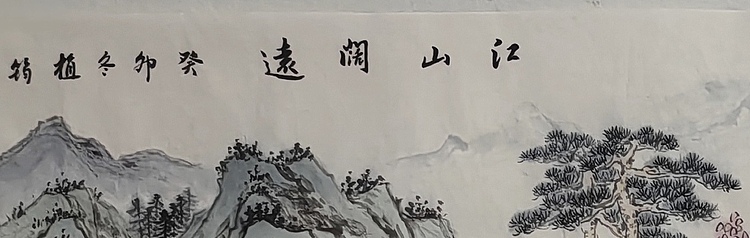 江山闊遠癸卯冬植筠